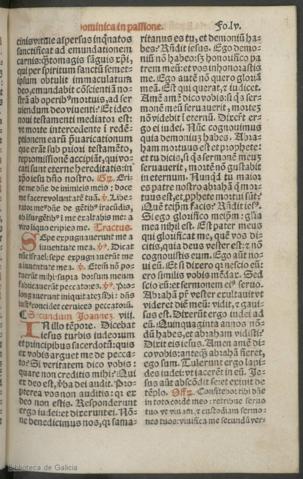 Dominica in passione. Fo.lv.
cinis vitule aspersus inq̃natos
sanctificat ad emundationem
carnis: q̃tomagis sãguis xp̃i,
qui per spiritum sanctũ semet-
ipsum obtulit immaculatum
deo, emundabit cõscientiã no-
strã ab operibꝰ mortuis, ad ser
uiendum deo viuenti: Et ideo
noui testamenti mediator est:
vt morte intercedente ĩ redẽ-
ptionem earũ p̃uaricationum
que erãt sub priori testamẽto,
repromissionẽ accipiãt, qui vo-
cati sunt eterne hereditatis: in
xp̃o iesu dño nostro.
Eri-
pe me dñe de inimicis meis: doce
me facere volũtatẽ tuã.
Tractus.
Sepe expugnauerunt me a
iuuentute mea. Dicat
nũc israel: sepe expugnauerũt me
a iuuentute mea.
supra dorsum meum
fabricauerũt peccatores.
Secundum Joannez. viii.
In illo tẽpore. Dicebat
iesus turbis iudeorum
et principibus sacerdotũ: quis
ex vobis arguet me de pecca-
to? Si veritatem dico vobis:
quare non creditis mihi? Qui
ex deo est, ṽba dei audit. Pro-
pterea vos non auditis: qr ex
deo non estis. Responderunt
ergo iudei: et dixerunt ei. Nõ-
ne benedicimus nos, q̃ sama-
ritanus es tu, et demoniũ ha-
bes? Rñdit iesus. Ego demo-
niũ nõ habeo: sʒ honorifico pa
trem meũ: et vos inhonorastis
me. Ego autẽ nõ quero gloriã
meã. Est qui querat, ⁊ iudicet.
Amẽ amẽ dico vobis: si q̃s ser
monẽ meũ seruauerit, mortẽ
nõ videbit ĩ eternũ. Dixerũt er
go ei iudei. Nũc cognouimus
quia demoniũ habes. Abra-
ham mortuus est et prophete:
et tu dicis, si q̃s sermonẽ meũ
seruauerit, mortẽ nõ gustabit
in eternum. Nunq̃d tu maior
es patre nostro abrahã q̃ mor-
tuus est, et ꝓphete mortui sũt?
Quẽ teipm̃ facis? Rñdit iesꝰ.
Si ego glorifico meipm̃: gl̃ia
mea nihil est. Est pater meus
qui glorificat me, quẽ vos di-
citis, quia deus vester est: ⁊ nõ
cognouistis eum. Ego aũt noui
eũ. Et si dixero qr nescio eũ:
ero similis vobis mẽdax. Sed
scio eũ: et sermonem eiꝰ seruo.
Abrahã pr̃ vester exultauit vt
videret diẽ meũ: vidit, ⁊ gaui-
sus est. Dixerũt ergo iudei ad
eũ. Quinquaginta annos nõ-
dũ habes, et abraham vidisti?
Dixit eis iesus. Amen amẽ di-
co vobis: anteq̃ abrahã fieret,
ego sum. Tulerunt ergo lapi-
des iudei: vt iacerẽt in eũ. Je-
sus aũt abscõdit se: et exiuit de
tẽplo. Offr. Confitebor tibi dñe
in toto corde meo: retribue seruo
tuo: vt viuam, ⁊ custodiam sermo-
nes tuos: viuifica me secundũ ver-
Biblioteca de Galicia